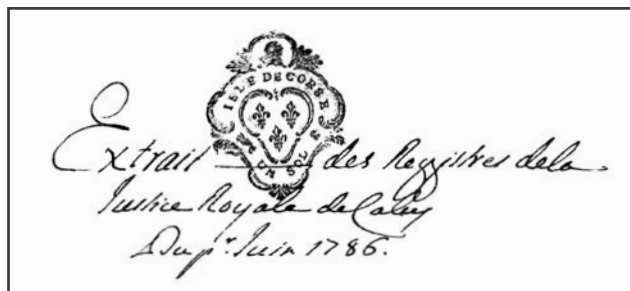 ISLE DE CORSE
UN SOL
Extrait des Registres de la
Justice Royale de Calvy
Du pr. Juin 1786.